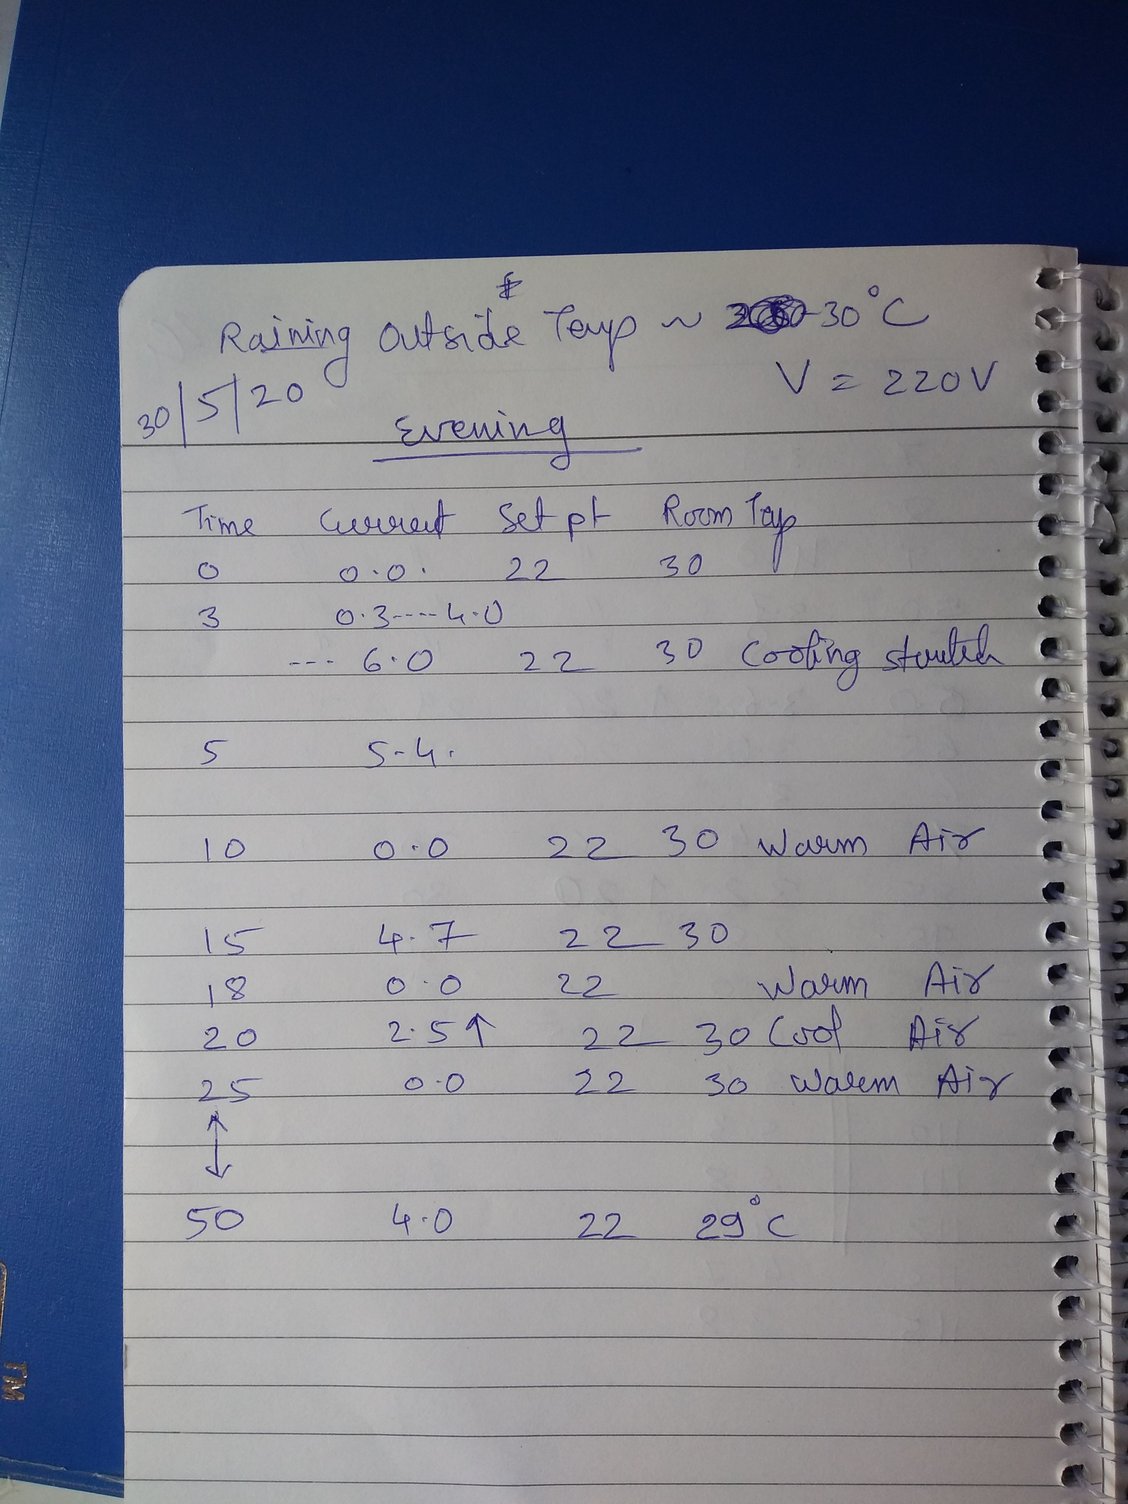 Raining Outside Temp ~ 30°C
V = 220V
30/5/20
Evening
Time Current Set pt Room Tep
0 0.0. 22 30
3 0.3----4.0
--- 6.0 22 30 Cooling started
5 5-4.
10 0.0 22 30 Warm Air
15 4.7 22 30
18 0.0 22 Warm Air
20 2.5↑ 22 30 Cool Air
25 0.0 22 30 Warm Air
↕
50 4.0 22 29°C
TM